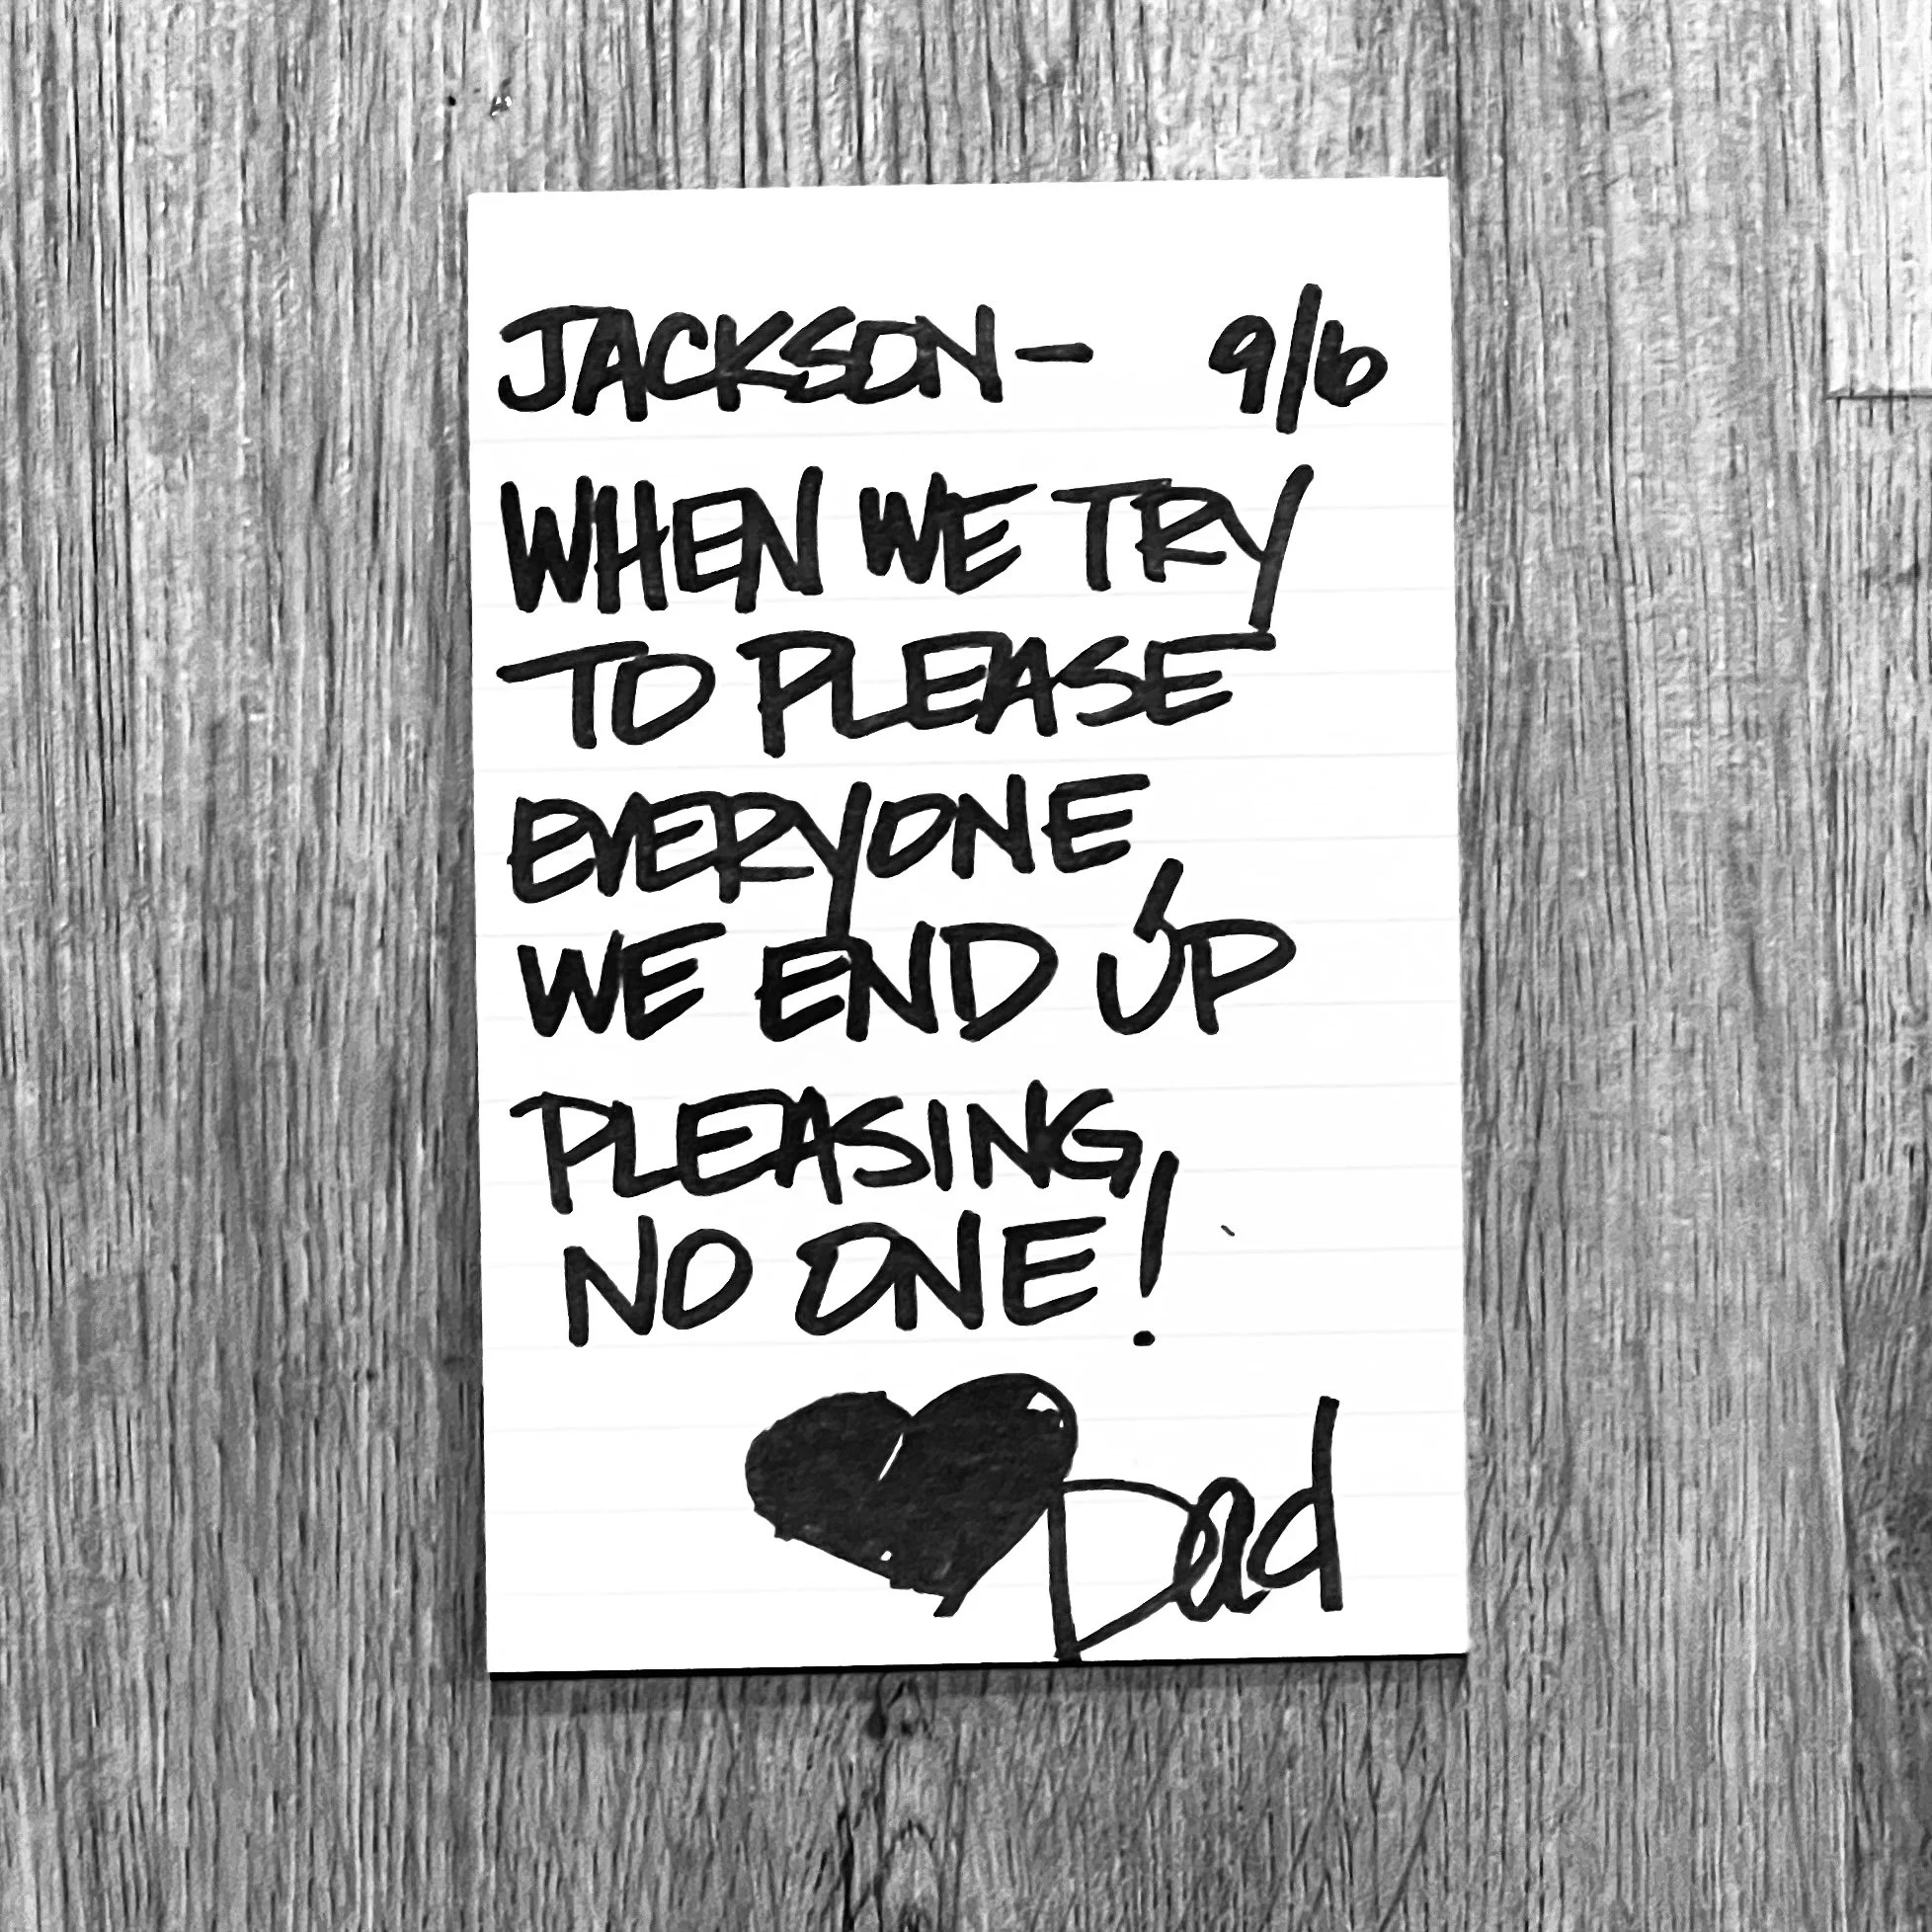 JACKSON- 9/6
WHEN WE TRY
TO PLEASE
EVERYONE,
WE END UP
PLEASING,
NO ONE!
Dad